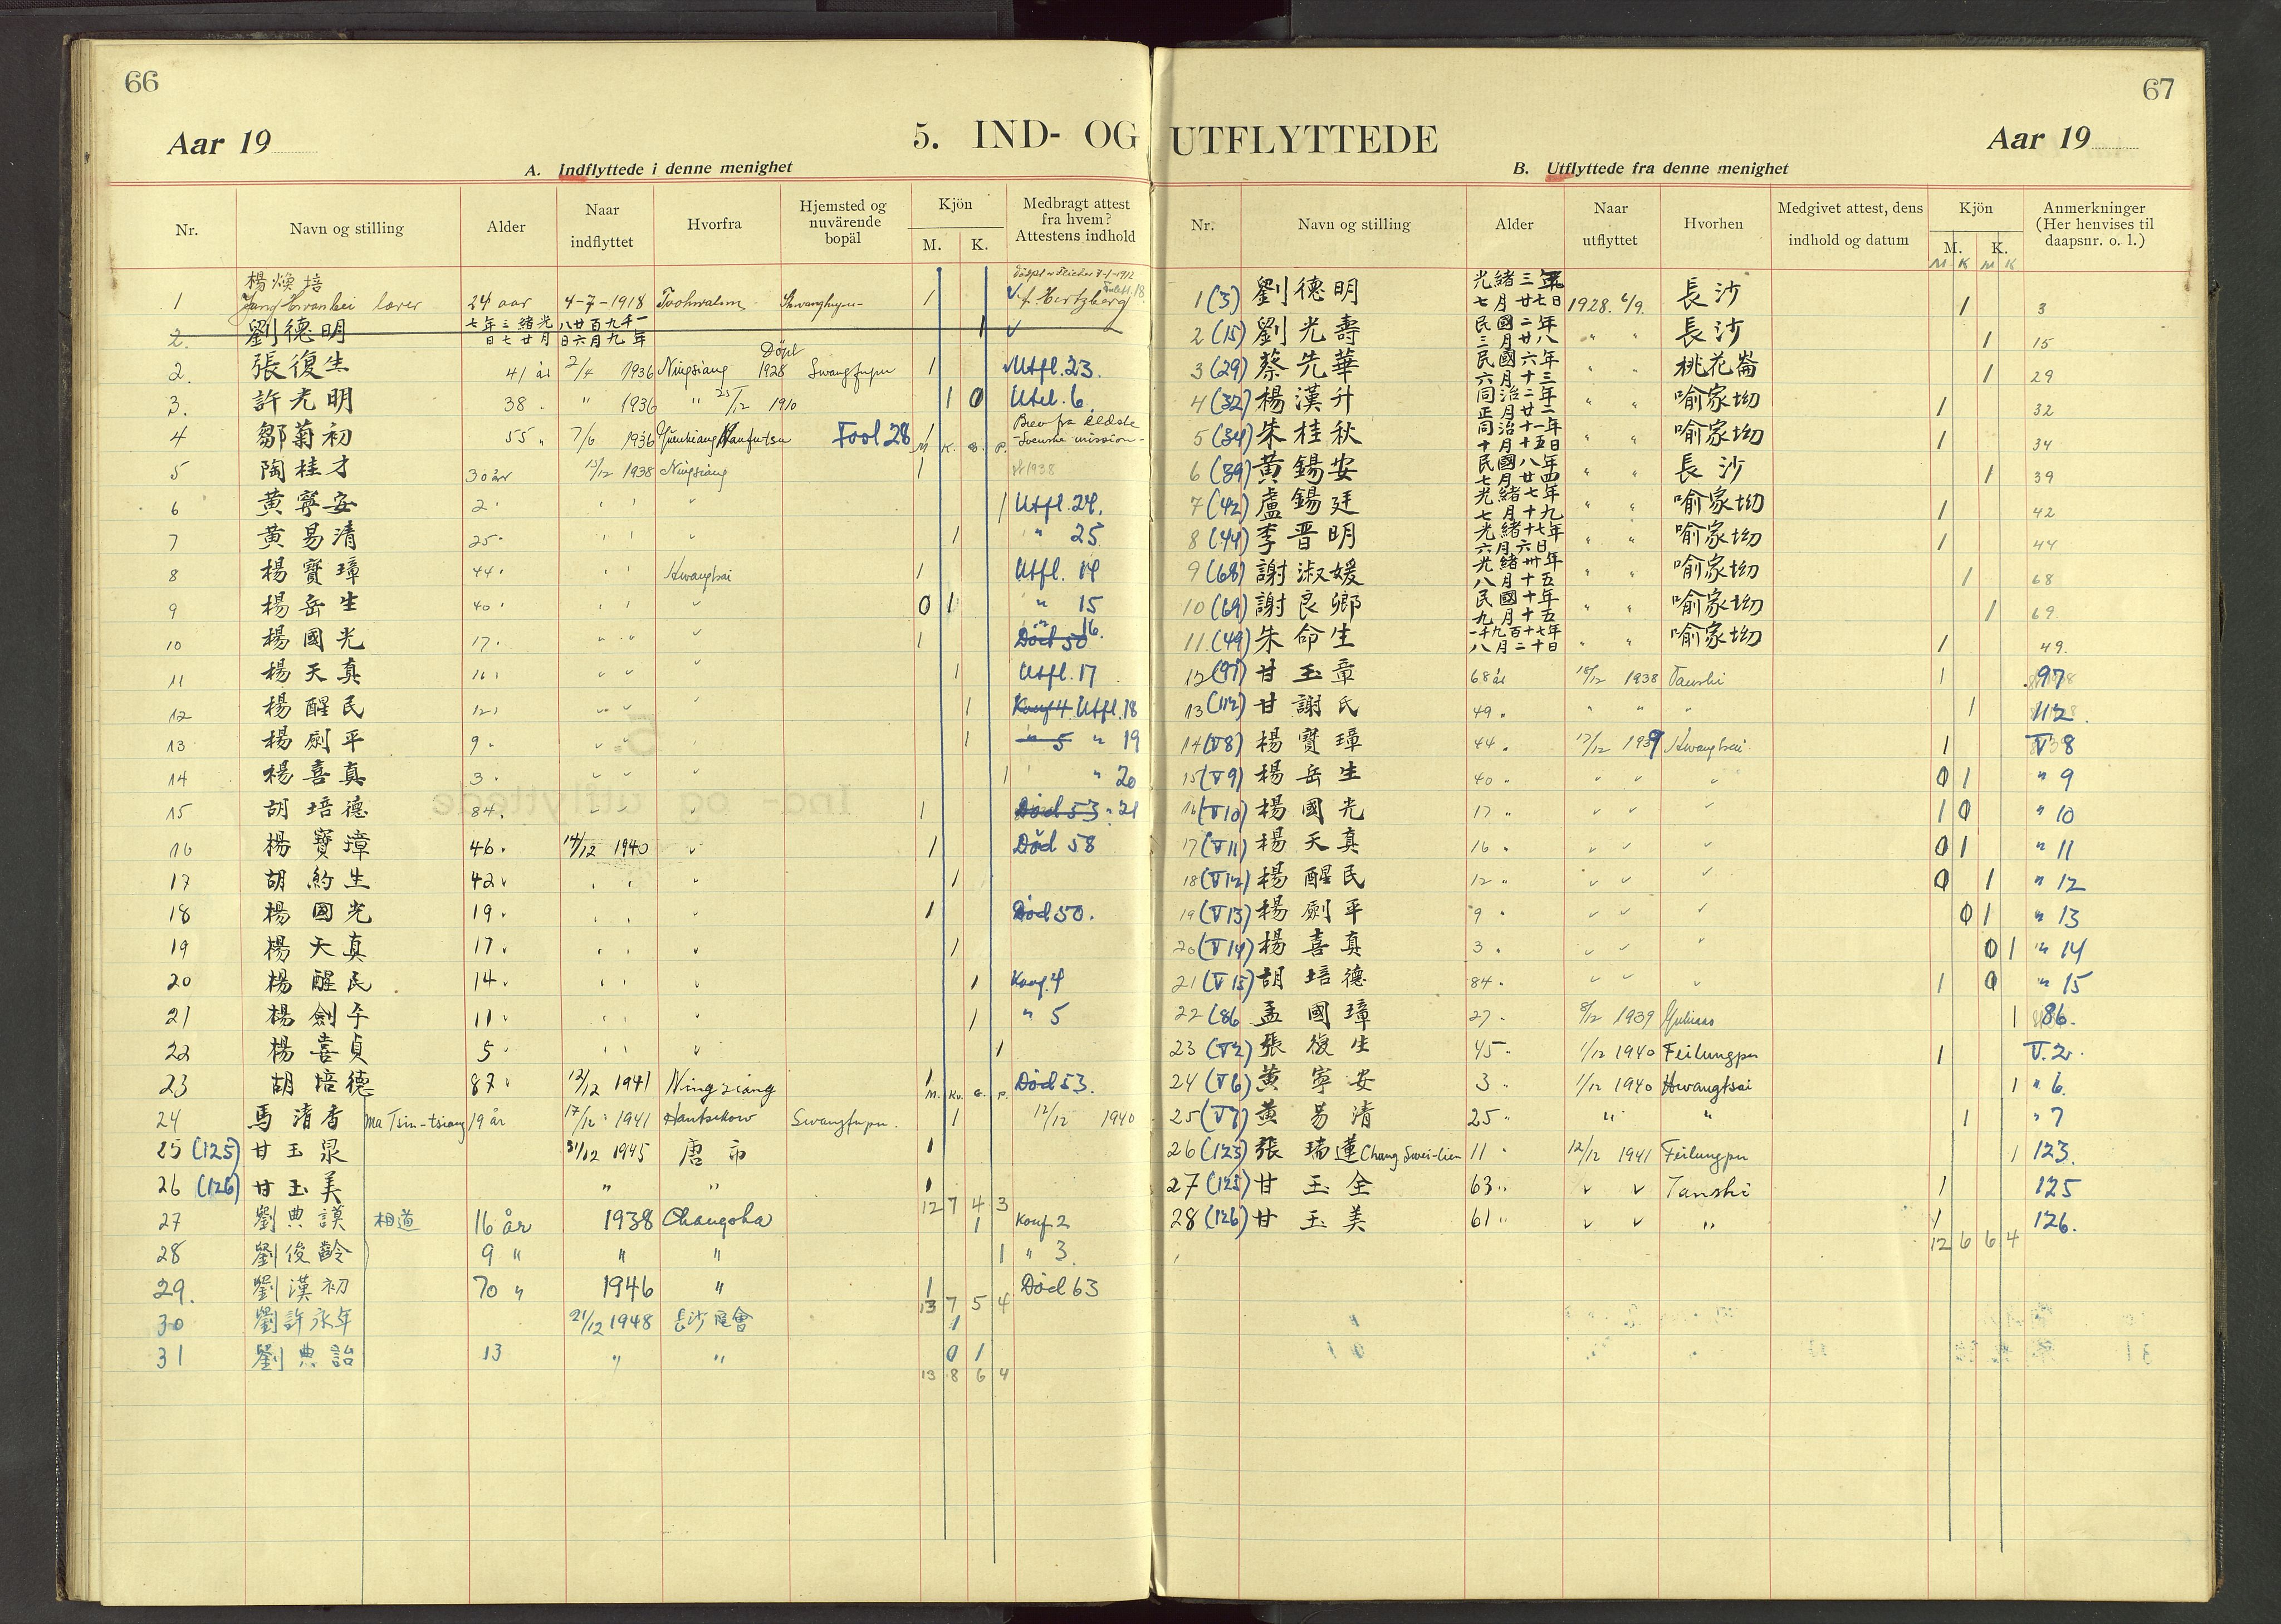 66
Aar 19
5. IND- OG
A. Indflyttede i denne menighet
Nr. Navn og stilling Alder Naar indflyttet Hvorfra Hjemsted og nuværende bopäl Kjön M. K. Medbragt attest fra hvem? Attestens indhold
楊煥培
1 lærer 24 aar 4-7-1918 1 f. Hertzberg
2. 劉德明
2. 張復生 41 år 2/4 1936 Ningsiang Döpt 1928 Swangfupu 1 Utfl. 23.
3. 許光明 38 " 1936 " 25/12 1910 1 0 Utel. 6
4 鄒菊初 55 " 7/6 1936 Fool 28 1 Brev fra ældste -Svenske mission-
M. K. G. P.
5 陶桂才 30 år 13/12 1938 Ningsiang 1
6 黃寧安 2 " 1 Utfl. 24.
7 黃易清 25 " 1 " 25
8 楊寶璋 44 " Hwangtsai 1 Utfl. 14
9 楊岳生 40 " 0 1 " 15
10 楊國光 17 " 1 Död 50 " 16.
11 楊天真 16 " 1 Utfl. 17
12 楊醒民 12 " 1 Konf 4. Utfl. 18
13 楊劍平 9 " 1 " 5 " 19
14 楊喜真 3 " 1 " 20
15 胡培德 84 " 1 Död 53 " 21
16 楊寶璋 46 " 14/12 1940 " 1 Död 58
17 胡約生 42 " 1
18 楊國光 19 " 1 Död 50.
19 楊天真 17 " 1
20 楊醒民 14 " 1 Konf. 4
21 楊劍平 11 " 1 " 5
22 楊喜貞 5 " 1
23 胡培德 87 " 12/12 1941 Ningsiang 1 Död 53.
M. Kv. G. P.
24 馬清香 Ma Tsin-tsiang 19 år 17/12 1941 Hantschow Swangfupu. 1 12/12 1940
25 (125) 甘玉泉 31/12 1945 唐市 1
26 (126) 甘玉美 " " 1
12 7 4 3
27 劉典謨 相道 16 år 1938 Changsha 1 Konf 2
28 劉俊齡 9 " " " 1 " 3.
29. 劉漢初 70 " 1946 " 1 Död 63
13 7 5 4
30 劉許永年 21/12 1948 長沙 會 1
31 劉典詒 13 " " 0 1
13 8 6 4
67
UTFLYTTEDE
Aar 19
B. Utflyttede fra denne menighet
Nr. Navn og stilling Alder Naar utflyttet Hvorhen Medgivet attest, dens indhold og datum Kjön M. K. Anmerkninger (Her henvises til daapsnr. o. l.)
M K M K
1 (3) 劉德明 光緒三年七月廿七日 1928. 6/9. 長沙 1 3
2 (15) 劉光壽 民國二年三月廿八 " " 長沙 1 15
3 (29) 蔡先華 民國六年六月十三 " " 桃花崙 1 29
4 (32) 楊漢升 同治二年正月廿二 " " 喻家坳 1 32
5 (34) 朱桂秋 同治十一年十月十五日 " " 喻家坳 1 34
6 (39) 黃錫安 民國八年七月廿四 " " 長沙 1 39
7 (42) 盧錫廷 光緒七年七月十九 " " 喻家坳 1 42
8 (44) 李晋明 光緒十七年六月六日 " " 喻家坳 1 44
9 (68) 謝淑媛 光緒卅年八月十五 " " 喻家坳 1 68
10 (69) 謝良鄉 民國十年九月十五 " " 喻家坳 1 69.
11. (49) 朱命生 一千九百十七年八月二十日 " " 喻家坳 1 49.
12 (97) 甘玉章 68 år 18/12 1938 Tanshi 1 97
13 (112) 甘謝氏 49 " " " " 1 112.
14 (V8) 楊寶璋 44 " 17/12 1939 Hwangtsai 1 V 8
15 (V9) 楊岳生 40 " " " " 0 1 " 9
16 (V10) 楊國光 17 " " " " 1 0 " 10
17 (V11) 楊天真 16 " " " " 0 1 " 11
18 (V12) 楊醒民 12 " " " " 0 1 " 12
19 (V13) 楊劍平 9 " " " " 0 1 " 13
20 (V14) 楊喜真 3 " " " " 0 1 " 14
21 (V15) 胡培德 84 " " " " 1 0 " 15
22 (86 孟國璋 27 " 8/12 1939 1 86.
23 (V2) 張復生 45 " 1/12 1940 Feilungpu 1 V. 2.
24 (V6) 黃寧安 3 " 1/12 1940 Hwangtsai 1 " 6.
25 (V7) 黃易清 25 " " " 1 " 7
26 (123) 張瑞蓮 Chang Swei-lien 11 " 12/12 1941 Feilungpu 1 123.
27 (125) 甘玉全 63 " " " Tanshi 1 125
28 (126) 甘玉美 61 " " " " 1 126.
12 6 6 4